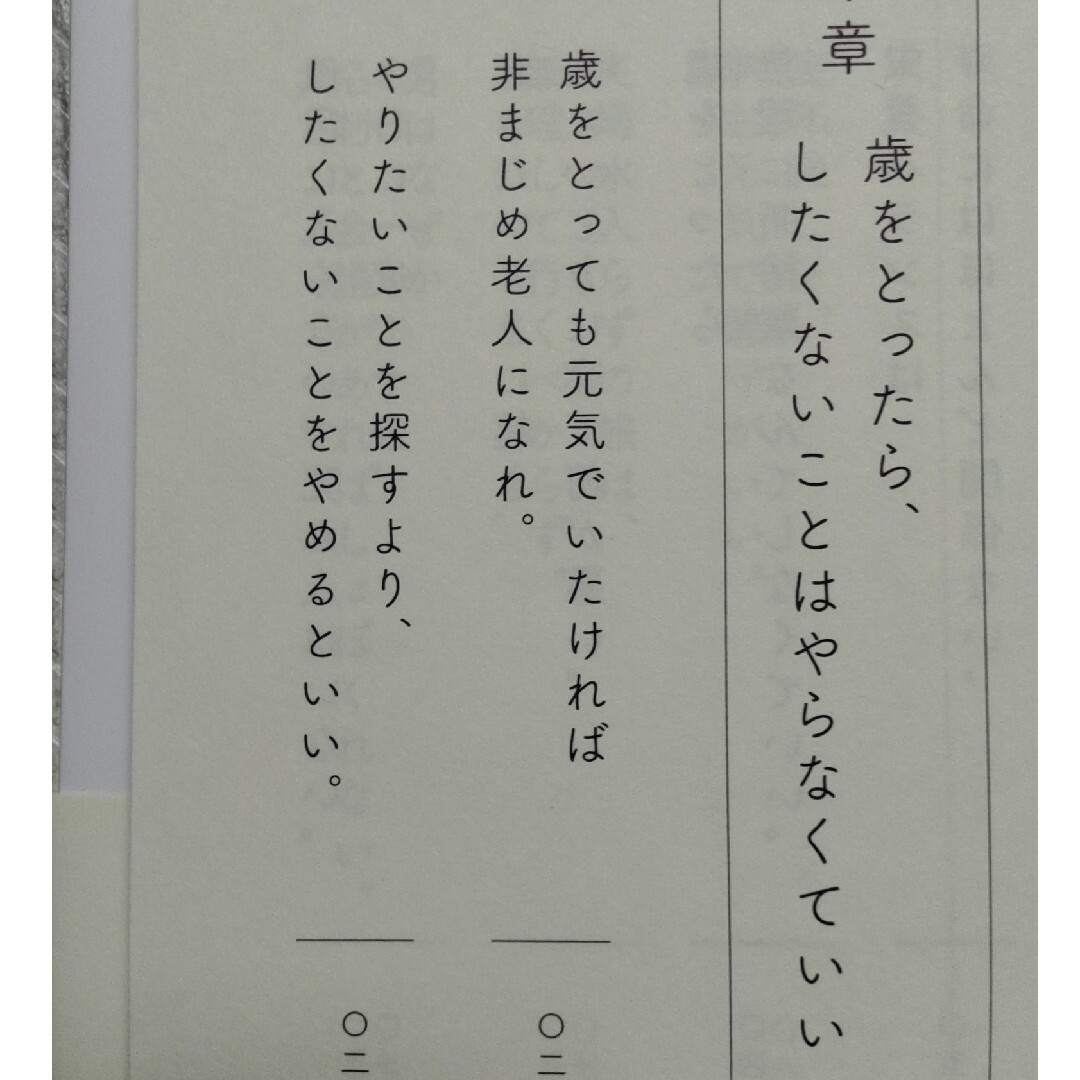 章
歳をとったら、
したくないことはやらなくていい
歳をとっても元気でいたければ
非まじめ老人になれ。
〇二
やりたいことを探すより、
したくないことをやめるといい。
〇二